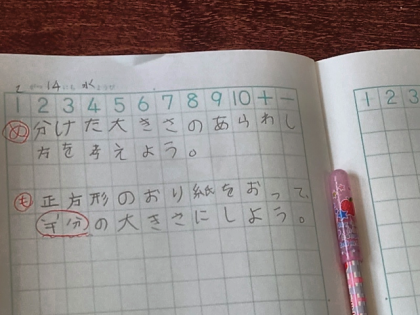 14 水
1 2 3 4 5 6 7 8 9 10 + −
め 分けた大きさのあらわし
方を考えよう。
も 正方形のおり紙をおって、
半分の大きさにしよう。
1 2 3